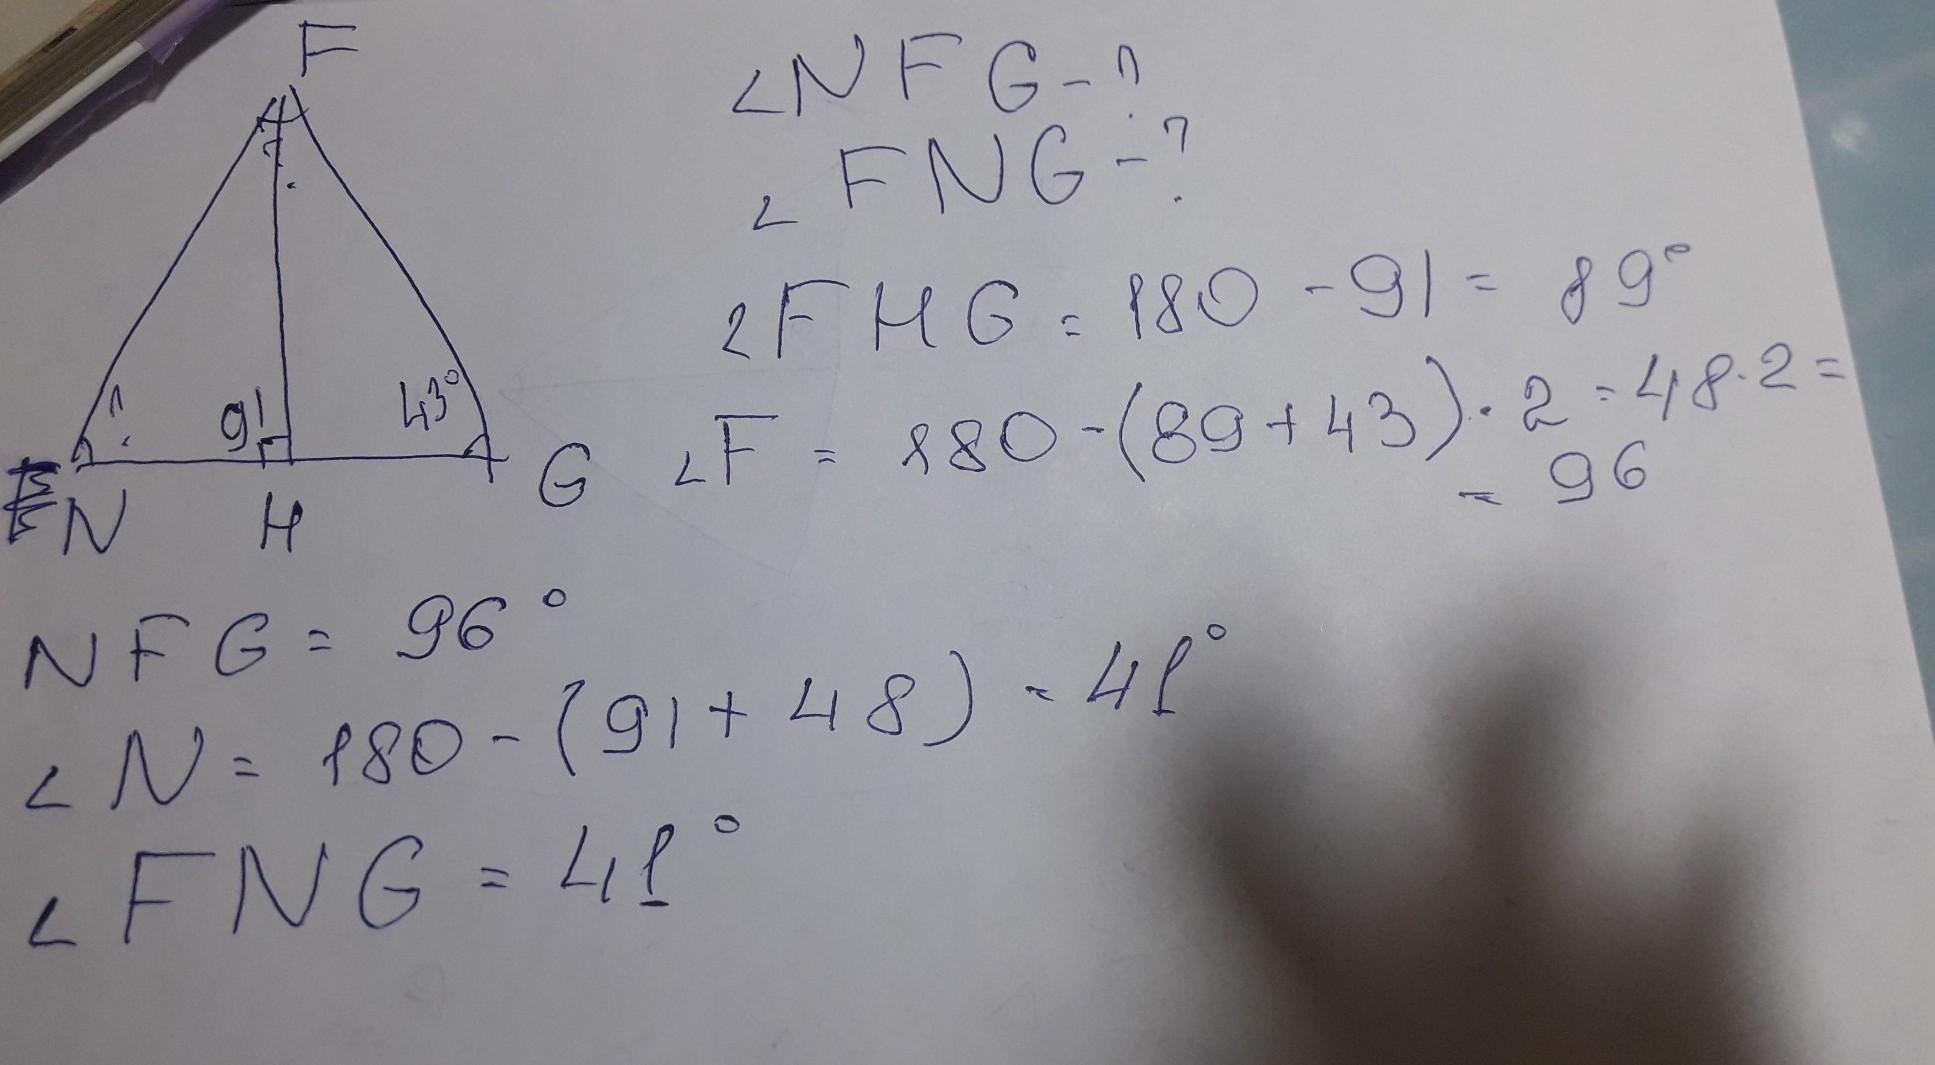 F
∠NFG-?
∠FNG-?
?
?
91
43°
N
H
G
∠FHG=180-91=89°
∠F=180-(89+43)·2=48·2=
=96
NFG=96°
∠N=180-(91+48)=41°
∠FNG=41°